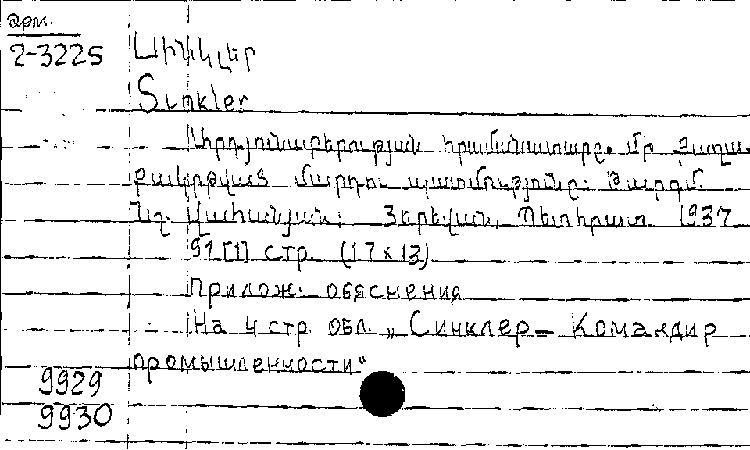 Арм.
2-3225
Սինկլեր
Sinkler
Արդյունաբերության հրամանատարը. մի քաղա-
քակրթված մարդու պատմությունը: Թարգմ.
Եղ. Վահանյան: Յերեվան, Պետհրատ. 1937
91 [1] стр. (17 x 13)
Прилож. обяснения
На 4 стр. обл. „Синклер – Командир
промышленности“
9929
9930